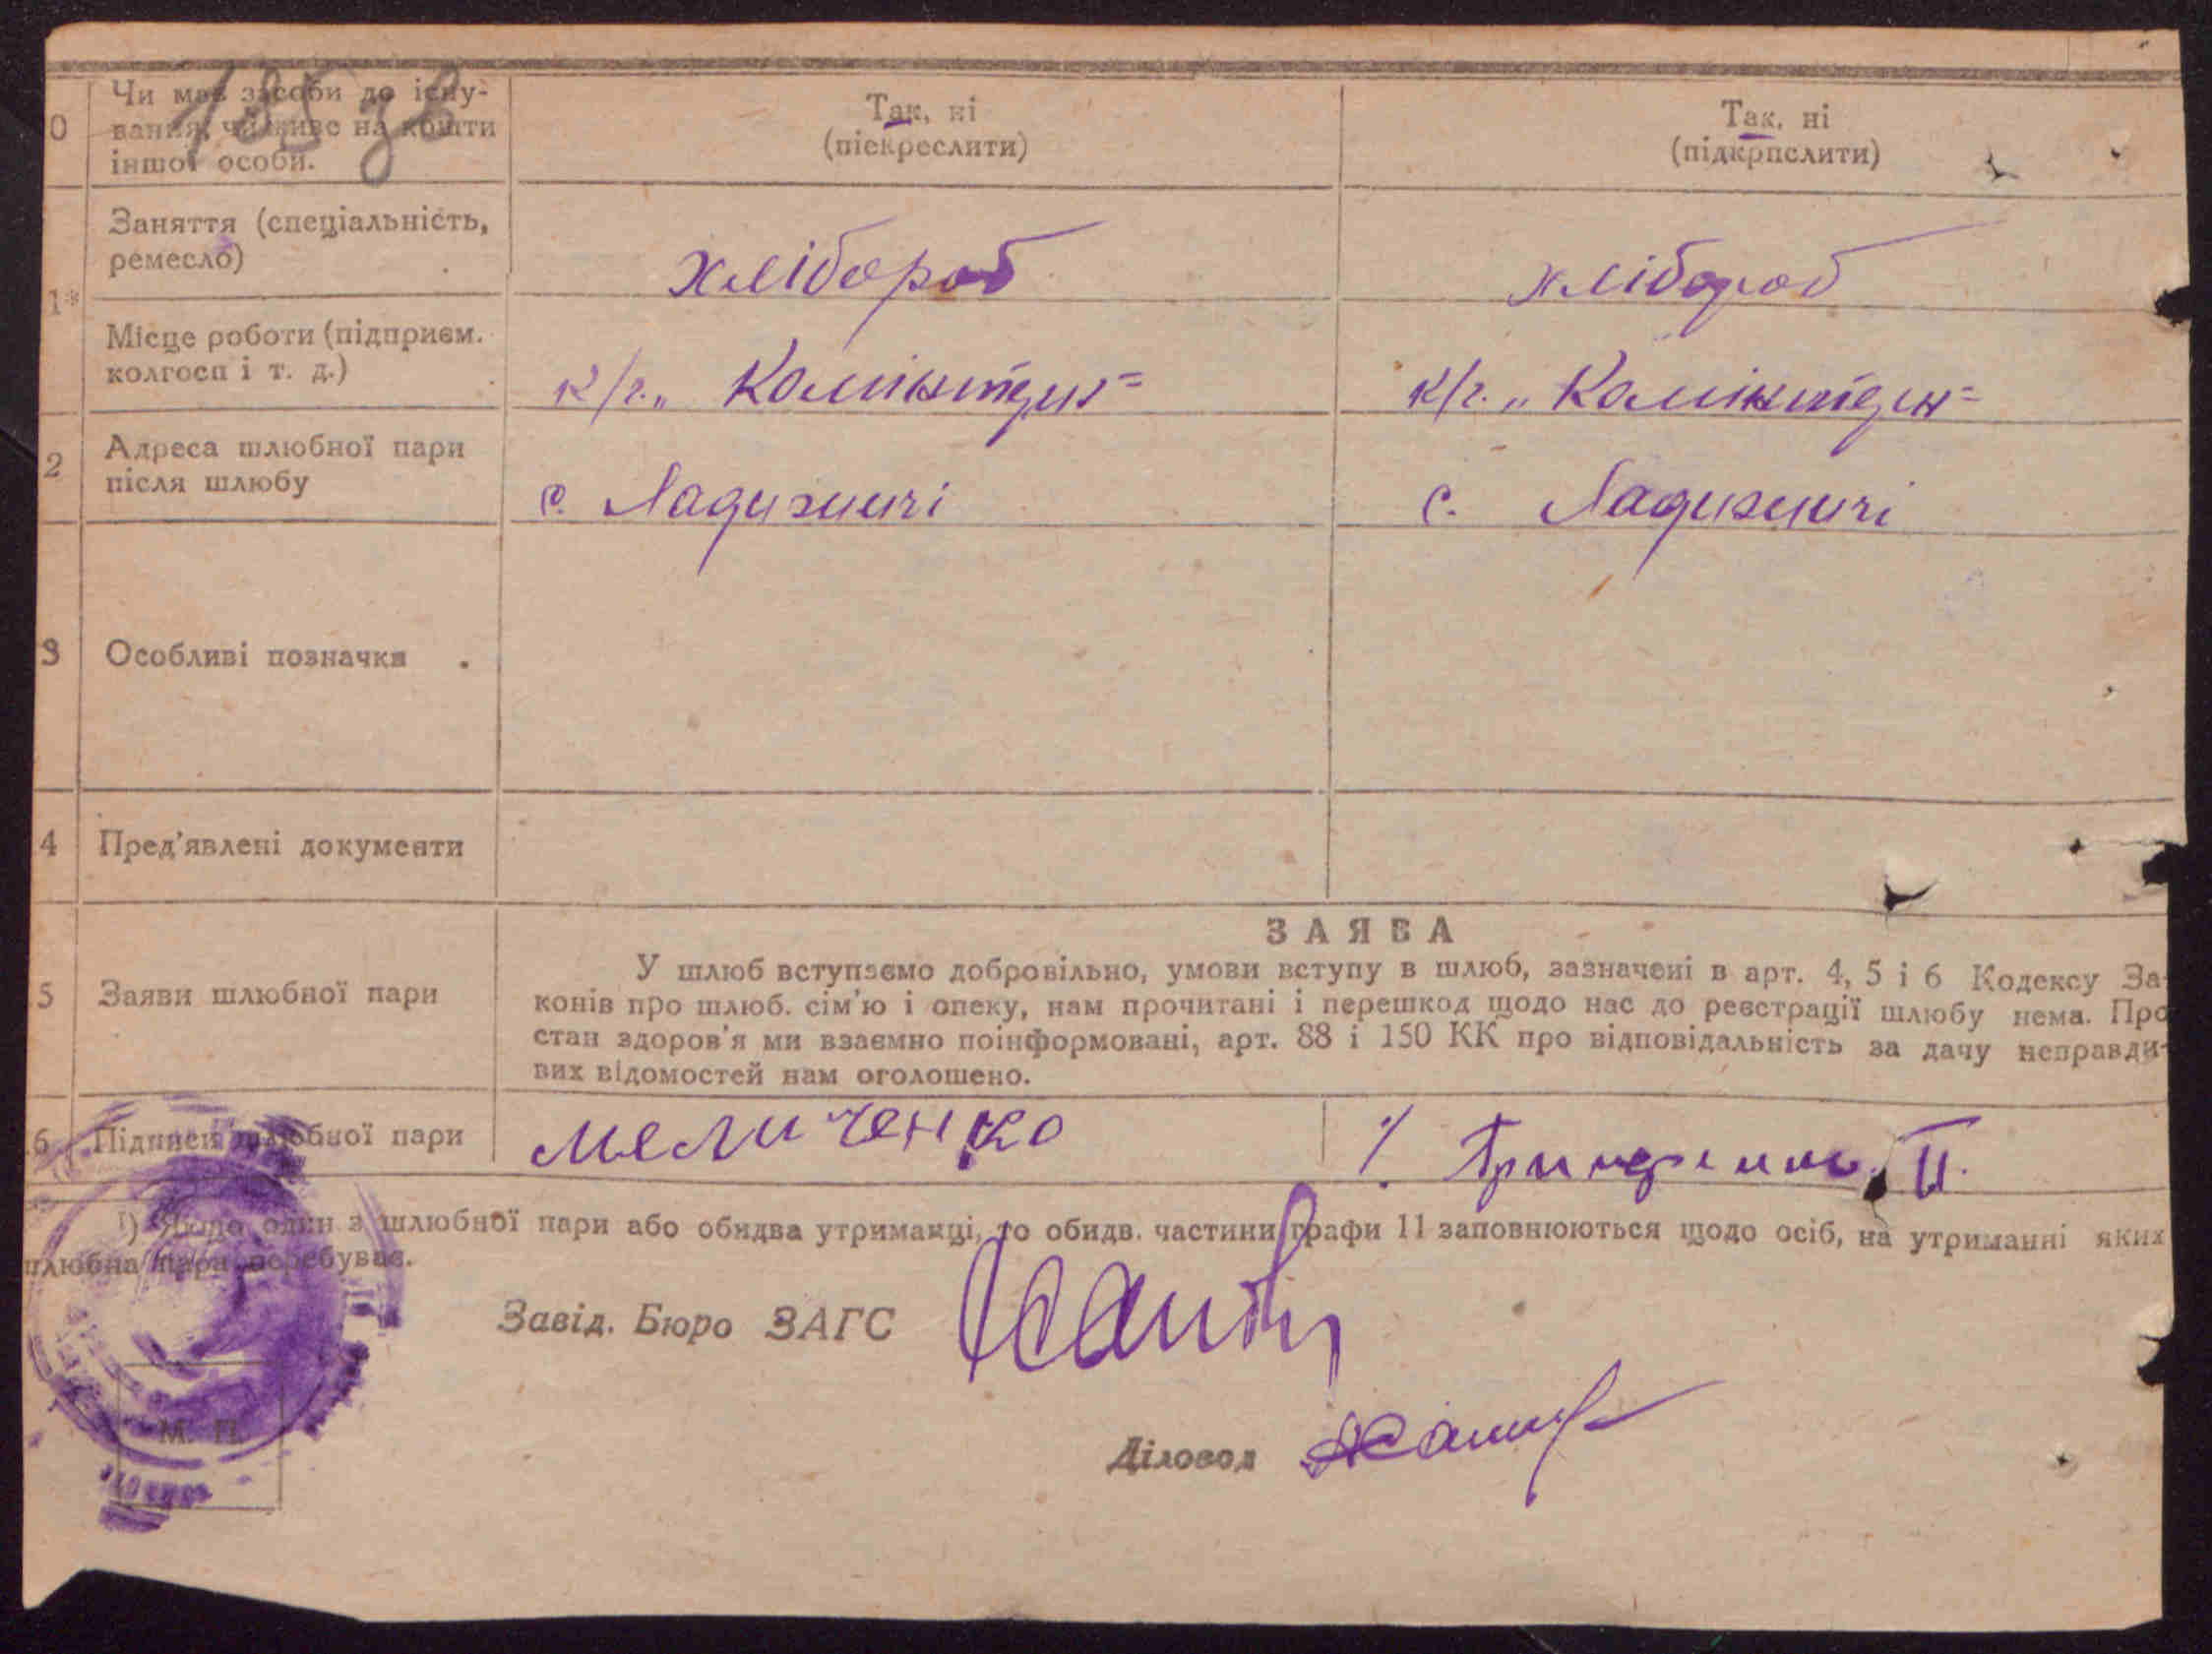 0
Чи має засоби до існу-
вання, чи живе на кошти
іншої особи.
Так, ні
(піекреслити)
Так, ні
(підкрпслити)
1*
Заняття (спеціальність,
ремесло)
хлібороб
хлібороб
Місце роботи (підприєм.
колгосп і т. д.)
к/г. „Комінтерн"
к/г. „Комінтерн"
2
Адреса шлюбної пари
після шлюбу
с. Ладижичі
с. Ладижичі
3
Особливі позначки
4
Пред'явлені документи
5
Заяви шлюбної пари
ЗАЯВА
У шлюб вступаємо добровільно, умови вступу в шлюб, зазначені в арт. 4, 5 і 6 Кодексу За-
конів про шлюб. сім'ю і опеку, нам прочитані і перешкод щодо нас до реєстрації шлюбу нема. Про
стан здоров'я ми взаємно поінформовані, арт. 88 і 150 КК про відповідальність за дачу неправди-
вих відомостей нам оголошено.
6
Підписи шлюбної пари
Меличенко
П.
1) Якщо один з шлюбної пари або обидва утриманці, то обидв. частини графи 11 заповнюються щодо осіб, на утриманні яких
шлюбна пара перебуває.
Завід. Бюро ЗАГС
Діловод
М. П.